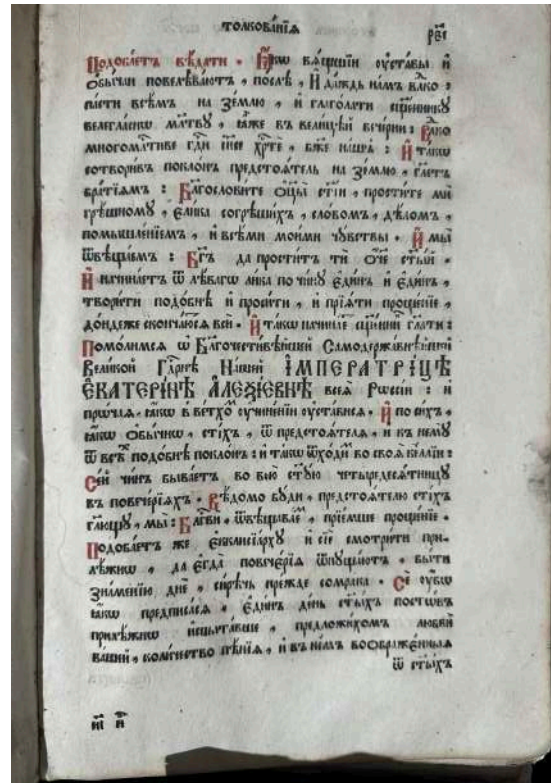 толкованїѧ
Подоба́етъ вѣ́дати . Ꙗ҆́кѡ вѧ́щшїи ᲂу҆ста́вы и҆
ѻ҆бы́чаи повелѣва́ютъ , послѣ̀ , И҆ да́ждь на́мъ влⷣко :
па́сти всѣ́мъ на зе́млю , и҆ глаго́лати сщ҃е́ннику
велегла́снѡ мл҃тву , ꙗ҆́же въ вели́цѣй вече́рни : Влⷣко
многомлⷭ҇тиве гдⷭ҇и і҆и҃се хрⷭ҇тѐ , бж҃е на́шъ : И҆ та́кѡ
сотвори́въ покло́нъ предстоѧ́тель на зе́млю , гл҃етъ
бра́тїѧмъ : Благослови́те ѻ҆ц҃ы̀ ст҃і́и , прости́те мѝ
грѣ́шному , є҆ли́ка согрѣши́хъ , сло́вомъ , дѣ́ломъ ,
помышле́нїемъ , и҆ всѣ́ми мои́ми чꙋ́вствы . И҆ мы̀
ѿвѣща́емъ : Бг҃ъ да прости́тъ тѝ ѻ҆́ч҃е ст҃ы́й .
И҆ начина́етъ ѿ лѣ́вагѡ ли́ка по чи́нꙋ є҆ди́нъ и҆ є҆ди́нъ ,
твори́ти подо́бнѣ и҆ проси́ти , и҆ прїѧ́ти проще́нїе ,
до́ндеже сконча́ютсѧ всѝ . И҆ та́кѡ начина́е сщ҃е́нникъ гл҃ати :
Помо́лимсѧ ѡ҆ Благочести́вѣйшей Самодержа́внѣйшей
Вели́кой Гдⷭ҇рнѣ На́шей І҆МПЕРАТРІ́ЦѢ
Є҆КАТЕРІ́НѢ А҆ЛЕѮІ́ЕВНѢ всеѧ̀ Рѡссі́и : и҆
прѡ́чаѧ . ꙗ҆́кѡ в ветхо́ сочине́нїи ᲂу҆ста́висѧ . И҆ по си́хъ ,
ꙗ҆́кѡ ѻ҆бы́чнѡ , сті́хъ , ѿ предстоѧ́телѧ , и҆ къ немꙋ̀
ѿ всѣ́ подо́бнѣ покло́нъ : и҆ та́кѡ ѿхо́ди во своѧ̑ кє́лїи :
Се́й чи́нъ быва́етъ во всю̀ ст҃ꙋ́ю четыредесѧ́тницꙋ
въ повече́рїѧхъ . Вѣ́домо бꙋ́ди , предстоѧ́телю сті́хъ
гл҃ющꙋ , мы̀ : Бл҃гвѝ . ѿвѣщава́е , прїе́мше проще́нїе .
Подоба́етъ же є҆кклисїа́рхꙋ и҆ сїѐ смотри́ти при-
лѣ́жнѡ , да є҆гда̀ повече́рїѧ ѿпꙋща́ютъ , бы́ти
зна́менїю днѐ , си́рѣчь пре́жде со́мрака . Се́ ᲂу҆́бѡ
ꙗ҆́кѡ предписа́сѧ , є҆ди́нъ де́нь ст҃ы́хъ постѡ́въ
прилѣ́жнѡ и҆спыта́вше , предложи́хомъ любвѝ
ва́шей , коли́чество пѣ́нїѧ , и҆ въ не́мъ воѡбраже́нныѧ
ѿ ст҃ы́хъ